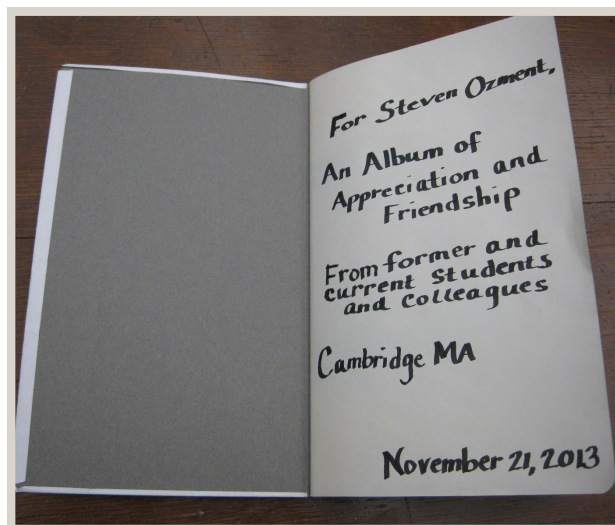 For Steven Ozment,
An Album of
Appreciation and
Friendship
From former and
current students
and colleagues
Cambridge MA
November 21, 2013